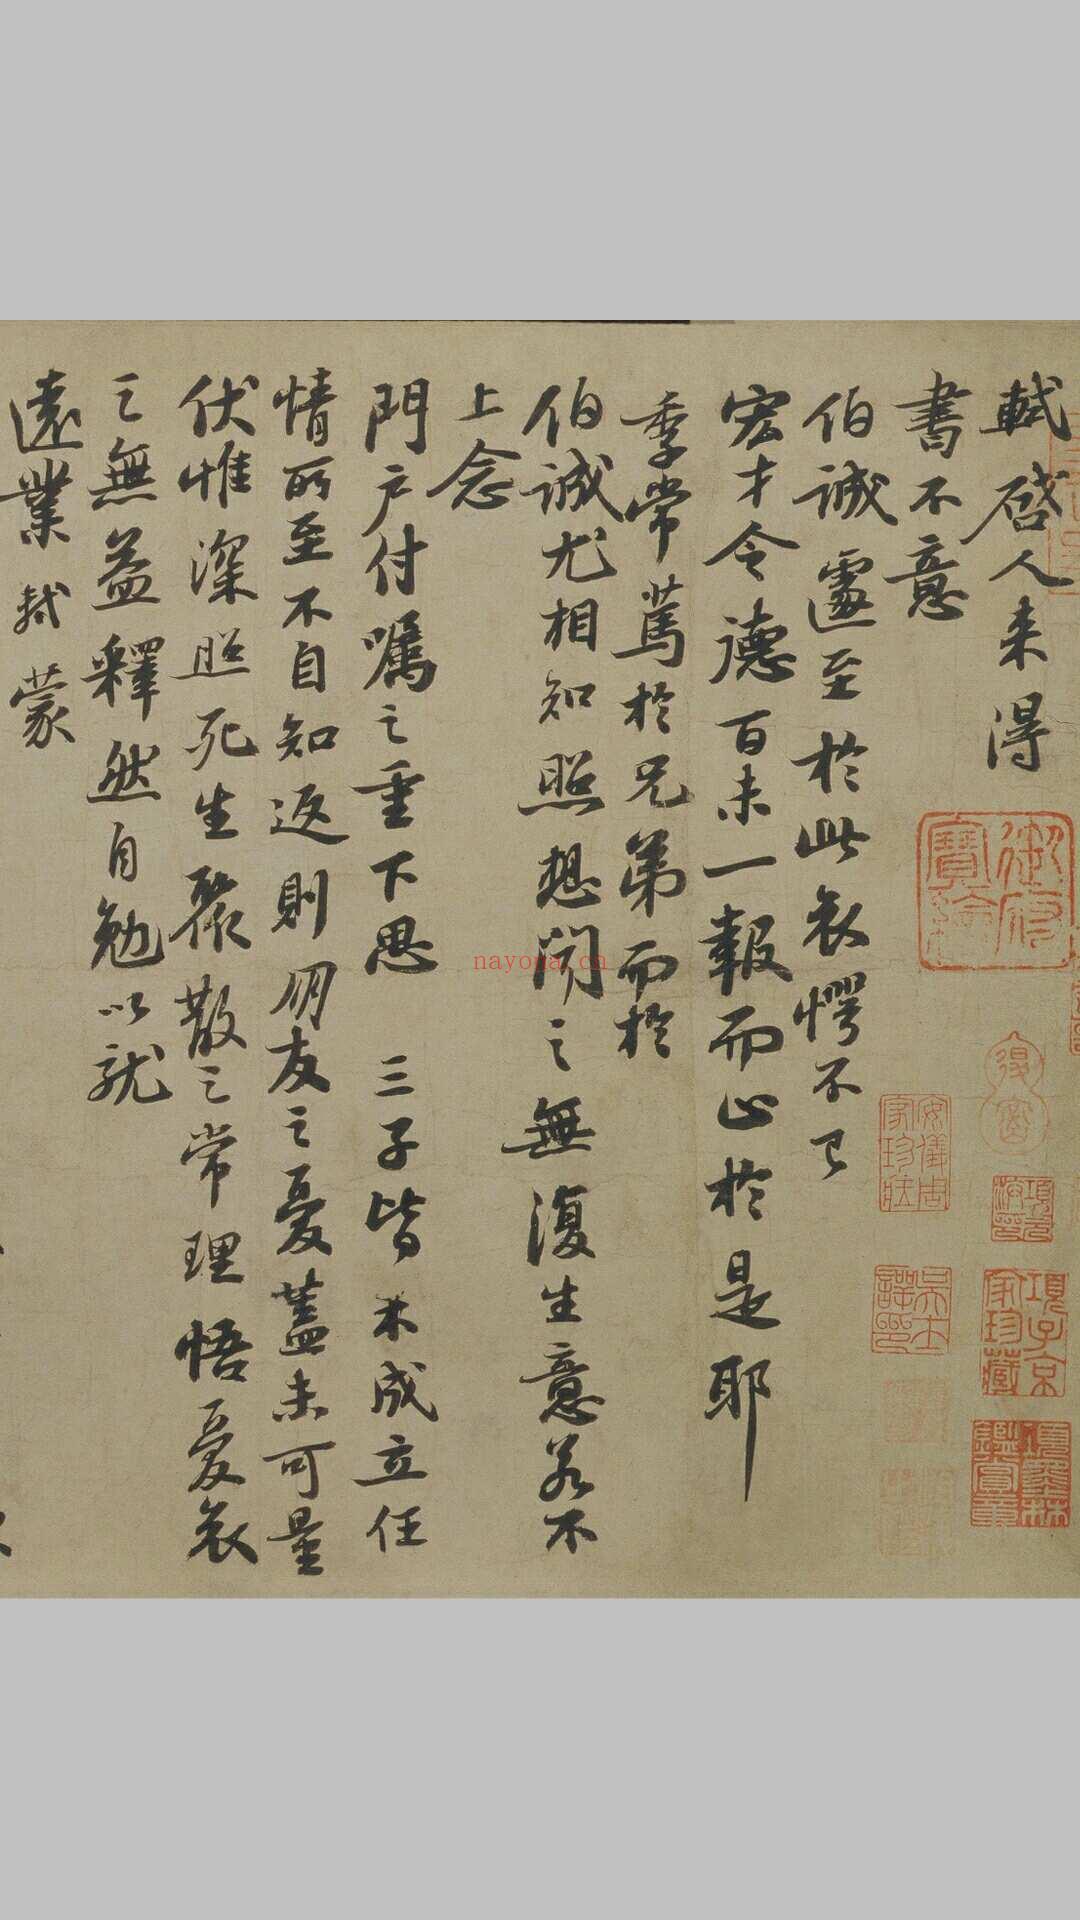 軾啓人来得
書不意
伯誠遽至於此哀愕不已
宏才令德百未一報而止於是耶
季常篤於兄弟而於
伯誠尤相知照想聞之無復生意若不
上念
門户付囑之重下思三子皆未成立任
情所至不自知返則朋友之憂蓋未可量
伏惟深照死生聚散之常理悟憂哀
之無益釋然自勉以就
遠業軾蒙
御府寶繪
安儀周家珍藏
項子京家珍藏
項墨林鑑賞章
nayona.cn